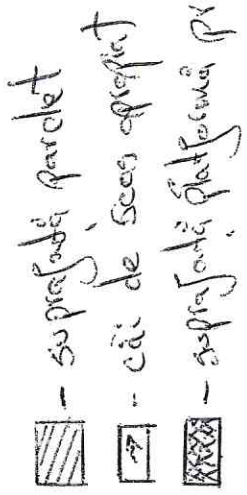 - suprafață parchet
- căi de scos apropiat
- suprafață platformă pr